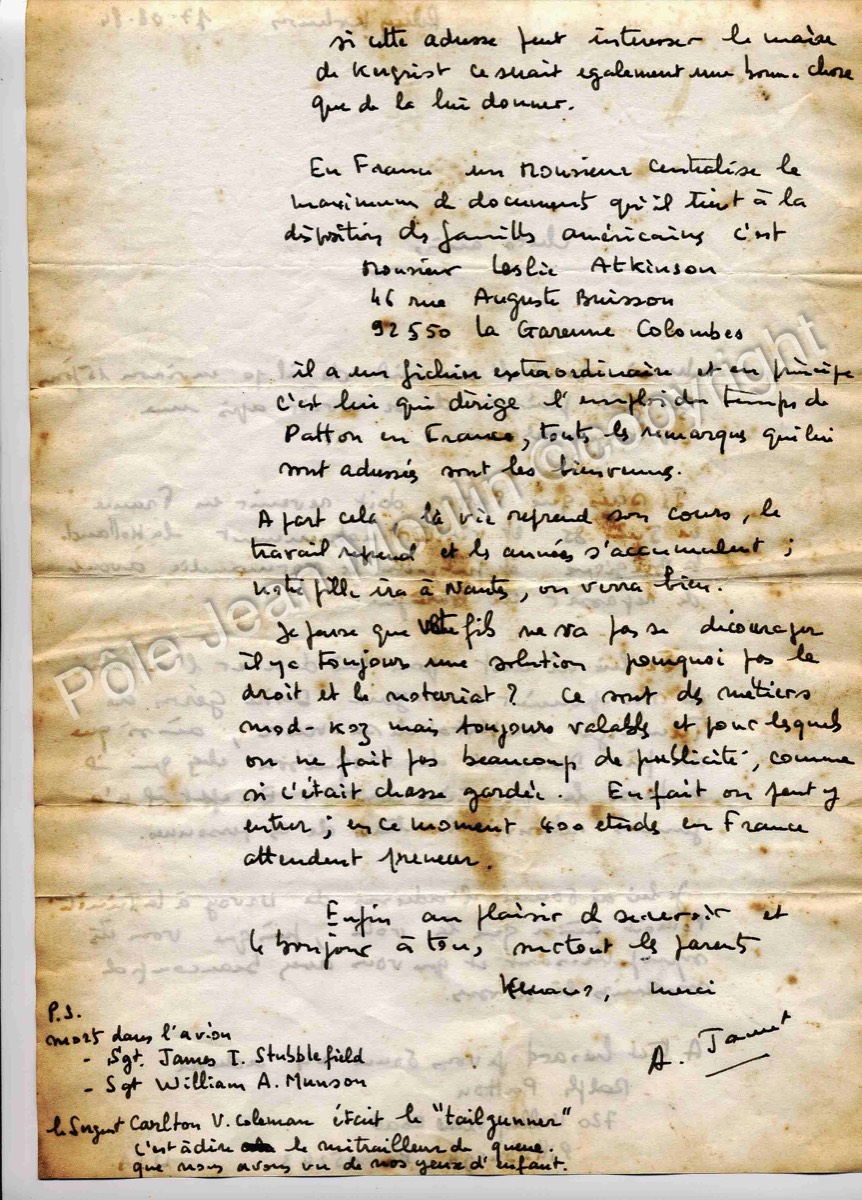 si cette adresse peut interesser le maire
de Kergrist ce serait egalement une bonne chose
que de la lui donner.
En France un Monsieur centralise le
maximum de document qu'il tient à la
disposition des familles américaines c'est
Monsieur Leslie Atkinson
46 rue Auguste Buisson
92550 La Garenne Colombes
il a un fichier extraordinaire et en principe
c'est lui qui dirige l'emploi du temps de
Patton en France, touts les remarques qui lui
sont adressés sont les bienvenues.
A part cela, la vie reprend son cours, le
travail reprend et les années s'accumulent ;
notre fille ira à Nantes, on verra bien.
Je pense que votre fils ne va pas se décourager
il y a toujours une solution pourquoi pas le
droit et le notariat ? Ce sont des métiers
mod-koz mais toujours valables et pour lesquels
on ne fait pas beaucoup de publicité, comme
si c'était chasse gardée. En fait on peut y
entrer ; en ce moment 400 etudes en France
attendent preneur.
Enfin au plaisir de se revoir et
le bonjour à tous, surtout les parents
merci
A. Jamet
P.S.
mort dans l'avion
- Sgt. James I. Stubblefield
- Sgt William A. Munson
le Sergent Carlton V. Coleman était le "tailgunner"
c'est à dire le mitrailleur de queue.
que nous avons vu de nos yeux d'enfant.
Pôle Jean Moulin @copyright